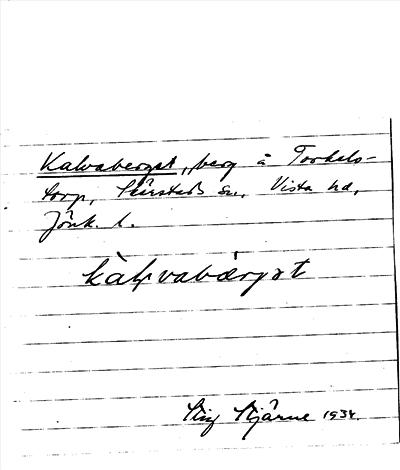 Kalvaberget, berg å Torkels-
torp, Skärstads sn, Vista hd,
Jönk. l.
kàlvabærgət
Stig Stjärne 1934.